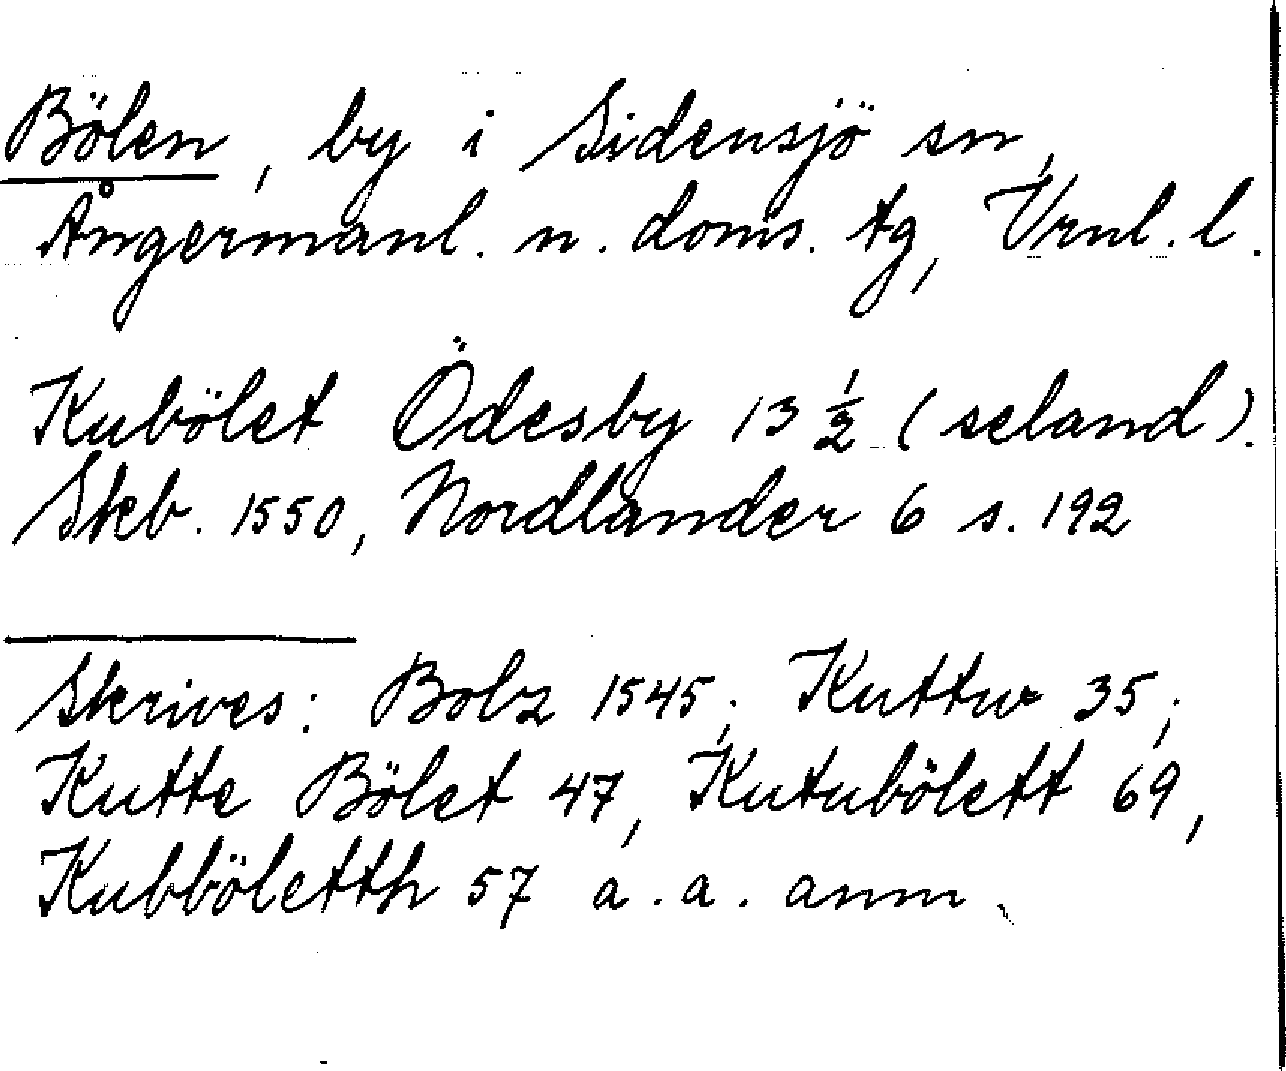 Bölen, by i Sidensjö sn,
Ångermanl. n. doms. tg, Vrnl. l.
Kubölet Ödesby 13 ½ (seland).
Skb. 1550, Nordlander 6 s. 192
Skrives: Bolz 1545; Kuttw 35;
Kutte Bölet 47, Kutubölett 69,
Kubböletth 57 a.a. anm.